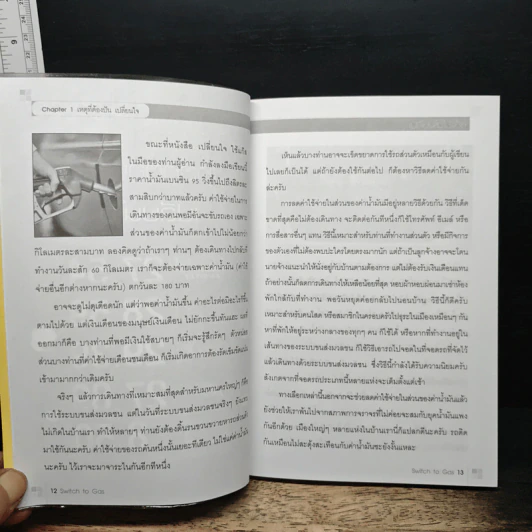 6
Chapter 1 เหตุที่ต้องปัน เปลี่ยนใจ
ขณะที่หนังสือ เปลี่ยนใจ ใช้แก๊ส
ในมือของท่านผู้อ่าน กำลังลงมือเขียนนี้
ราคาน้ำมันเบนซิน 95 วิ่งขึ้นไปถึงลิตรละ
สามสิบกว่าบาทแล้วครับ ค่าใช้จ่ายในการ
เดินทางของคนพอมีอันจะขับรถเอง เฉพาะ
ส่วนของค่าน้ำมันก็ตกเข้าไปไม่น้อยกว่า
กิโลเมตรละสามบาท ลองคิดดูว่าถ้าเราๆ ท่านๆ ต้องเดินทางไปกลับที่
ทำงานวันละสัก 60 กิโลเมตร เราก็จะต้องจ่ายเฉพาะค่าน้ำมัน
จ่ายอื่นอีกต่างหากนะครับ) ตกวันละ 180 บาท
อาจจะดูไม่ดุเดือดนัก แต่ว่าพอค่าน้ำมันขึ้น ค่าอะไรต่อมิอะไรก็ขึ้น
ตามไปด้วย แต่เงินเดือนของมนุษย์เงินเดือน ไม่ยักกะขึ้นทันแฮะ
ออกมาก็คือ บางท่านที่พอมีเงินใช้สบายๆ ก็เริ่มจะรู้สึกรัดๆ ตัว
ส่วนบางท่านที่ค่าใช้จ่ายเดือนชนเดือน ก็เริ่มเกิดอาการต้องรัดเข็มขัด
เข้ามามากกว่าเดิมครับ
จริงๆ แล้วการเดินทางที่เหมาะสมที่สุดสำหรับมหานครใหญ่ๆ ก็คือ
การใช้ระบบขนส่งมวลชน แต่ในวันที่ระบบขนส่งมวลชนจริงๆ ยัง
ไม่เกิดในบ้านเรา ทำให้หลายๆ ท่านยังต้องดิ้นรนขวนขวายหารถส่วนตัว
มาใช้กันนะครับ ค่าใช้จ่ายของรถคันหนึ่งนั้นเยอะทีเดียว ไม่ใช่แค่ค่าน้ำมัน
นะครับ ไว้เราจะมาจาระไนกันอีกทีหนึ่ง
12 Switch to Gas
เห็นแล้วบางท่านอาจจะเข็ดขยาดการใช้รถส่วนตัวเหมือนกับผู้เขียน
ไปเลยก็เป็นได้ แต่ถ้ายังต้องใช้กันต่อไป ก็ต้องหาวิธีลดค่าใช้จ่ายกัน
ล่ะครับ
การลดค่าใช้จ่ายในส่วนของค่าน้ำมันมีอยู่หลายวิธีด้วยกัน วิธีที่เด็ด
ขาดที่สุดคือไม่ต้องเดินทาง จะติดต่อกันทีหนึ่งก็ใช้โทรศัพท์ อีเมล์ หรือ
การสื่อสารอื่นๆ แทน วิธีนี้เหมาะสำหรับท่านที่ทำงานส่วนตัว หรือมีกิจการ
ของตัวเองที่ไม่ต้องพบปะใครโดยตรงมากนัก แต่ถ้าเป็นลูกจ้างอาจจะโดน
นายจ้างแนะนำให้นั่งอยู่กับบ้านตามต้องการ แต่ไม่ต้องรับเงินเดือนแทน
ถ้าอย่างนั้นก็ลดการเดินทางให้เหลือน้อยที่สุด หอบผ้าหอบผ่อนมาเช่าห้อง
พักใกล้กับที่ทำงาน พอวันหยุดค่อยกลับไปนอนบ้าน วิธีนี้ก็ดีครับ
เหมาะสำหรับคนโสด หรือสมาชิกในครอบครัวไปธุระในเมืองเหมือนๆ กัน
หาที่พักให้อยู่ระหว่างกลางของทุกๆ คน ก็ใช้ได้ หรือหากที่ทำงานอยู่ใน
เส้นทางของระบบขนส่งมวลชน ก็ใช้วิธีเอารถไปจอดในที่จอดรถที่จัดไว้
แล้วเดินทางด้วยระบบขนส่งมวลชน ซึ่งวิธีนี้กำลังได้รับความนิยมครับ
สังเกตจากที่จอดรถประเภทนี้หลายแห่งจะเต็มตั้งแต่เช้า
ทางเลือกเหล่านี้นอกจากจะช่วยลดค่าใช้จ่ายในส่วนของค่าน้ำมันแล้ว
ยังช่วยให้เราพ้นไปจากสภาพการจราจรที่ไม่ค่อยจะสมกับยุคน้ำมันแพง
กันอีกด้วย เมืองใหญ่ๆ หลายแห่งในบ้านเรานี่ก็แปลกดีนะครับ รถติด
กันเหมือนไม่สะดุ้งสะเทือนกับค่าน้ำมันซะยังงั้นแหละ
Switch to Gas 13